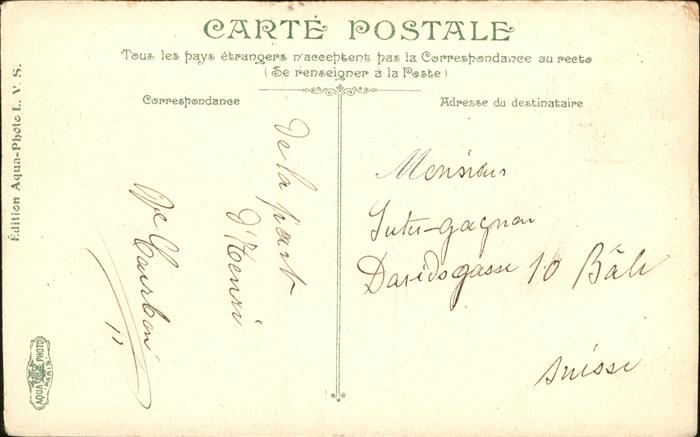 CARTE POSTALE
Tous les pays étrangers n'acceptent pas la Correspondance au recto
(Se renseigner à la Poste)
Correspondance
Adresse du destinataire
Édition Aqua-Photo L. V. S.
De la part
d'Henri
De
Monsieur
Davidsgasse 10 Bâle
Suisse
AQUA PHOTO
PARIS